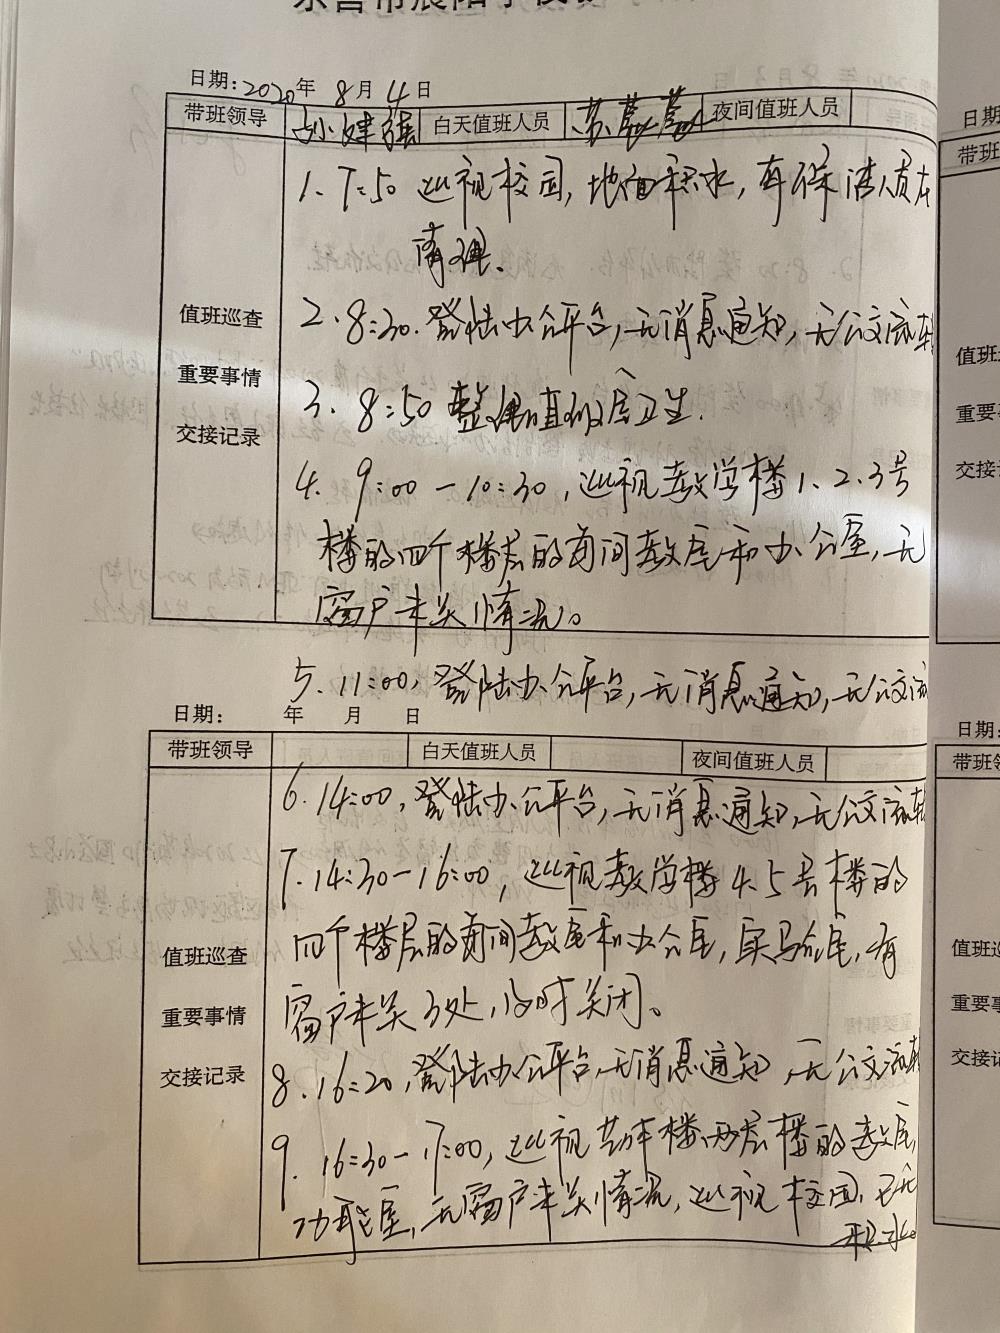 日期:2020年 8月 4日
带班领导 孙健强 白天值班人员 苏 夜间值班人员
1、7:50 巡视校园,地面积水,有保洁人员在
清理。
值班巡查 2.8:30.登陆办公平台,无消息通知,无公文流转
重要事情 3.8:50 整理值班室卫生.
交接记录 4.9:00-10:30,巡视教学楼1、2.3号
楼的四个楼层的每间教室和办公室,无
窗户未关情况。
5.11:00,登陆办公平台,无消息通知,无公文流
日期: 年 月 日
带班领导 白天值班人员 夜间值班人员
6.14:00,登陆办公平台,无消息通知,无公文流转
7.14:30-16:00,巡视教学楼4.5号楼的
值班巡查 四个楼层的每间教室和办公室,实验室,有
重要事情 窗户未关3处,及时关闭。
交接记录 8.16:20,登陆办公平台,无消息通知,无公文流转
9.16:30-17:00,巡视艺体楼两层楼的教室,
功能室,无窗户未关情况,巡视校园,已无
积水。
日期
带班
值班
重要
交接
日期:
带班
值班
重要事
交接记